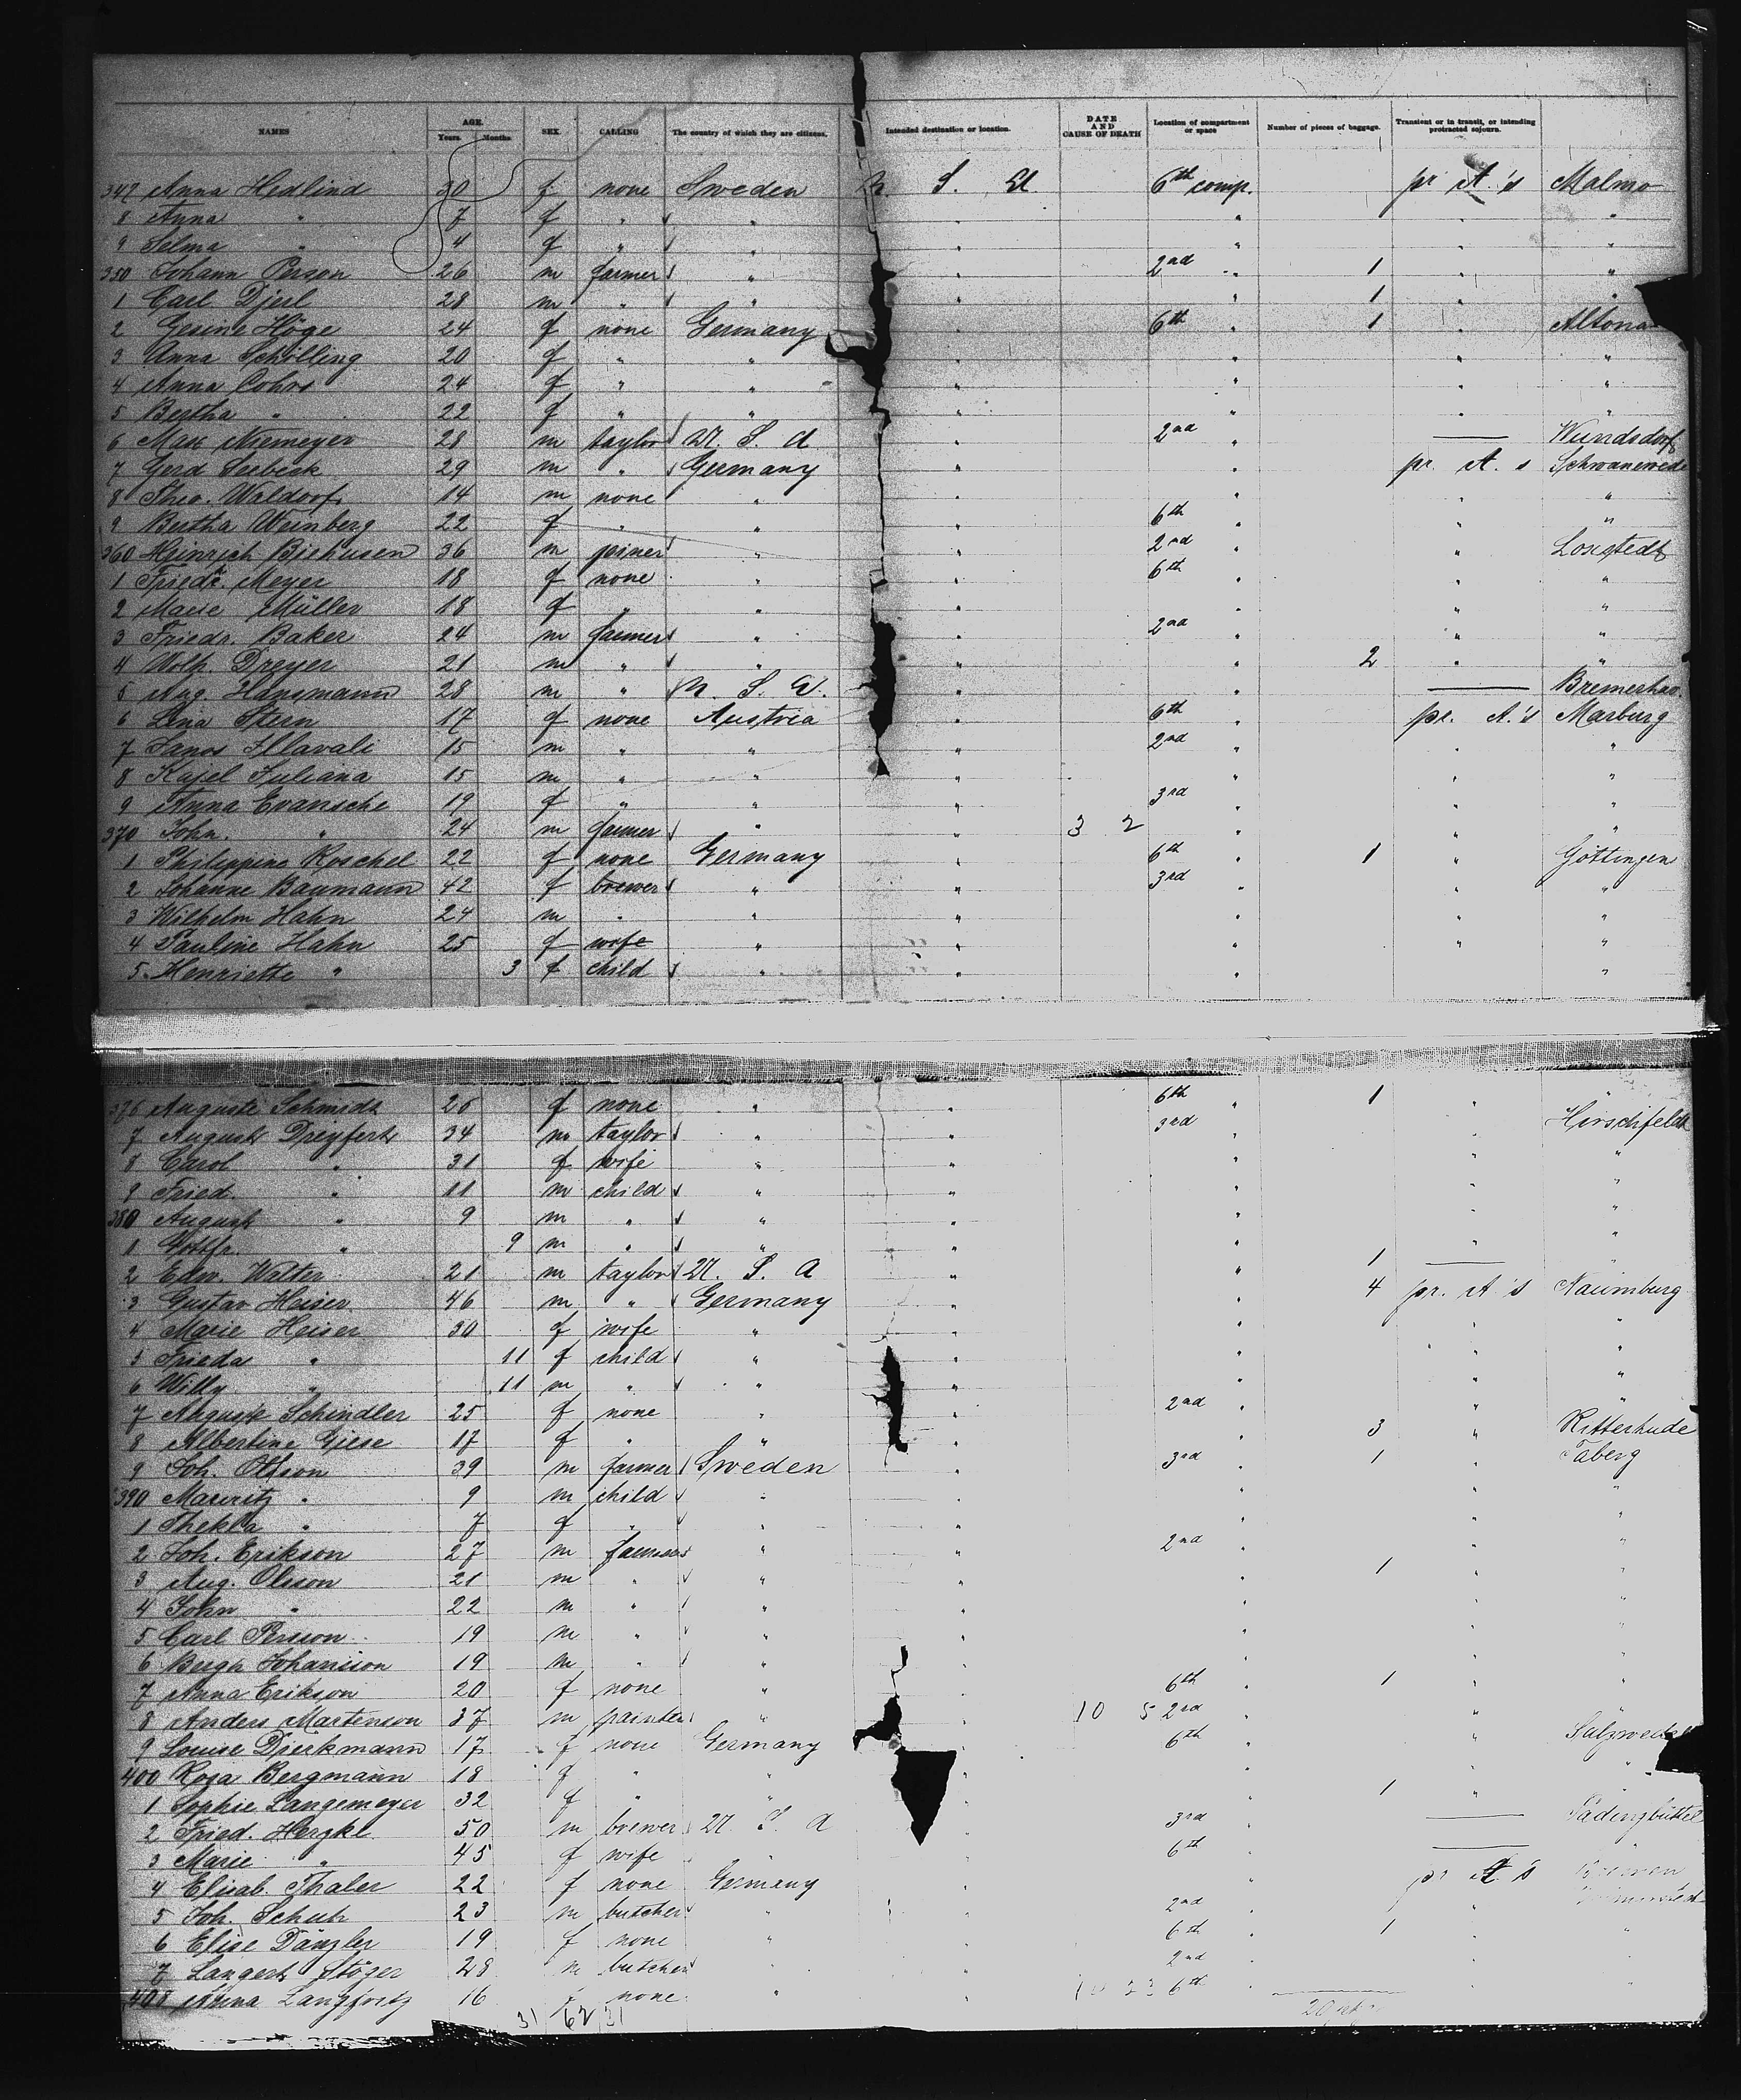 NAMES AGE. Years. Months. SEX. CALLING The country of which they are citizens. Intended destination or location. DATE AND CAUSE OF DEATH Location of compartment or space Number of pieces of baggage. Transient or in transit, or intending protracted sojourn.
347 Anna Hedlind 30 f none Sweden U. S. A 6th comp. pr. A.'s Malmo
8 Anna " 7 f " " " " " "
9 Selma " 4 f " " " " " "
350 Johann Person 26 m farmer " " 2nd " 1 " "
1 Carl Djerl 28 m " " " " 1 " "
2 Gesine Höge 24 f none Germany " 6th " 1 " Altona
3 Anna Schölling 20 f " " " " " "
4 Anna Cohrs 24 f " " " " " "
5 Bertha " 22 f " " " " " "
6 Max Niemeyer 28 m taylor U. S. A " 2nd " — Wundsdorf
7 Gerd Seebeck 29 m " Germany " " pr. A. s Schwanewede
8 Theo. Waldorf 14 m none " " " " "
9 Bertha Weinberg 22 f " " " 6th " " "
360 Heinrich Biehusen 36 m joiner " " 2nd " " Loxstedt
1 Friedr. Meyer 18 f none " " 6th " " "
2 Marie Müller 18 f " " " " " "
3 Friedr. Baker 24 m farmer " " 2nd " " "
4 Wolh. Dreyer 21 m " " " " 2 " "
5 Aug. Hansmann 28 m " U. S. A. " " — Bremerhav.
6 Lina Stern 17 f none Austria " 6th " pr. A.'s Marburg
7 Janos Illavali 15 m " " " 2nd " " "
8 Kajel Juliana 15 m " " " " " "
9 Anna Evansche 19 f " " " 3rd " " "
370 John. " 24 m farmer " " 3 2 " " "
1 Philippine Roschel 22 f none Germany " 6th " 1 " Göttingen
2 Johanne Baumann 42 f brewer " " 3rd " " "
3 Wilhelm Hahn 24 m " " " " " "
4 Pauline Hahn 25 f wife " " " " "
5 Henriette " 3 f child " " " "
376 Auguste Schmidt 26 f none " " 6th " 1 " "
7 August Dreyfert 34 m taylor " " 3rd " " Hirschfeldt
8 Carol " 31 f wife " " " " "
9 Fried. " 11 m child " " " " "
380 August " 9 m " " " " " "
1 Gottfr. " 9 m " " " " " "
2 Edw. Walter 21 m taylor U. S. A " " 1 — "
3 Gustav Heiser 46 m " Germany " " 4 pr. A's Naumburg
4 Marie Heiser 30 f wife " " " " "
5 Frieda " 11 f child " " " " "
6 Willy " 11 m " " " " " "
7 Auguste Schindler 25 f none " " 2nd " " "
8 Albertine Giese 17 f " " " " 3 " Ritterhude
9 Joh. Olsson 39 m farmer Sweden " 3rd " 1 " Taberg
390 Mauritz " 9 m child " " " " "
1 Thekla " 7 f " " " " " "
2 Joh. Erikson 27 m farmer " " 2nd " " "
3 Aug. Olsson 21 m " " " " 1 " "
4 John " 22 m " " " " " "
5 Carl Persson 19 m " " " " " "
6 Bergh Johansson 19 m " " " " " "
7 Anna Erikson 20 f none " " 6th " 1 " "
8 Anders Martenson 37 m painter " " 10 5 2rd " " "
9 Louise Dierkmann 17 f none Germany " 6th " " Salzwedel
400 Rosa Bergmann 18 f " " " " " "
1 Sophie Langemeyer 32 f " " " " 1 " "
2 Fried. Hergkl 50 m brewer U. S. A " 3rd " —
3 Marie " 45 f wife " " 6th " — "
4 Elisab. Thaler 22 f none Germany " " pr A's Bremen
5 Joh. Schub 23 m butcher " " 2nd " "
6 Elise Dänzler 19 f none " " 6th " 1 " "
7 Langert Stöger 28 m butcher " " 2nd " " "
408 Anna Langfortz 16 f none " " 10 23 6th " " "
31 62 31